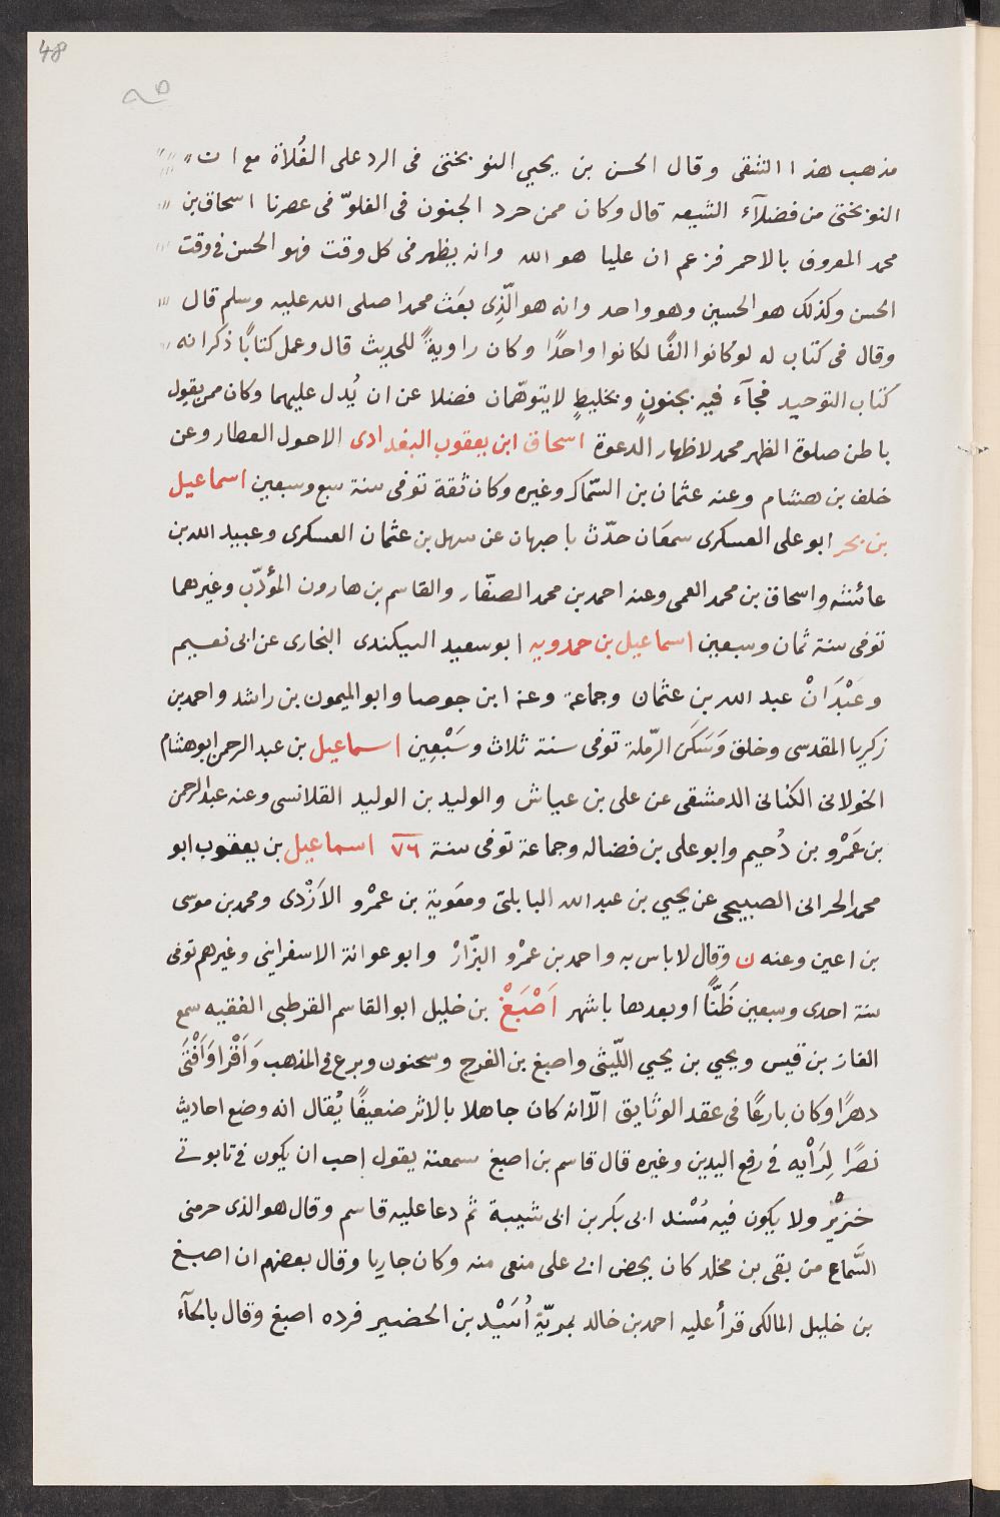 48
مذهب هذا الشقى وقال الحسن بن يحيي النوبختى فى الرد على الغُلاة مع ان
النوبختى من فضلآء الشيعه قال وكان ممن حرد الجنون فى الغلوّ فى عصرنا اسحاق بن
محمد المعروف بالاحمر فزعم ان عليا هو الله وانه يظهر فى كل وقت فهو الحسن فى وقت
الحسن وكذلك هو الحسين وهو واحد وانه هو الّذِى بعَث محمدا صلى الله عليه وسلم قال
وقال فى كتاب له لو كانوا الفًا لكانوا واحدًا وكان راويةً للحديث قال وعمل كتابًا ذكر انه
كتاب التوحيد فجآء فيه بجنونٍ وتخليطٍ لا يتوهّمان فضلا عن ان يُدل عليهما وكان ممن يقول
باطن صلوة الظهر محمد لاظهار الدعوة اسحاق ابن يعقوب البغدادى الاحول العطار وعن
خلف بن هشام وعنه عثمان بن السّماك وغيره وكان ثقة توفى سنة سبع وسبعين اسماعيل
بن بحر ابو على العسكرى سمعَان حدّث باصبهان عن سهل بن عثمان العسكرى وعبيد الله بن
عائشه واسحاق بن محمد العمى وعنه احمد بن محمد الصفّار والقاسم بن هارون المؤدّب وغيرهما
توفى سنة ثمان وسبعين اسماعيل بن حمدويه ابو سعيد البيكندى البخارى عن ابى نعيم
وعَبْدَانْ عبد الله بن عثمان وجماعة وعنه ابن جوصا وابو الميمون بن راشد واحمد بن
زكريا المقدسى وخلق وَسَكَن الرّملة توفى سنة ثلاث وسَبْعِين اسماعيل بن عبد الرحمن ابو هشام
الخولانى الكتانى الدمشقى عن على بن عياش والوليد بن الوليد القلانسى وعنه عبد الرحمن
بن عَمْرو بن دُحيم وابو على بن فضاله وجماعة توفى سنة ٧٦ اسماعيل بن يعقوب ابو
محمد الحرانى الصبيحى عن يحيي بن عبد الله البابلتى ومعَوية بن عمْرو الاَزْدى ومحمد بن موسى
بن اعين وعنه ن وقال لا باس به واحمد بن عمْرو البزّارْ وابو عوانة الاسفراينى وغيرهم توفى
سنة احدى وسبعين ظَنًّا او بعدها باشهر اَصْبَغْ بن خليل ابو القاسم القرطبى الفقيه سمع
الغاز بن قيس ويحيي بن يحيي اللّيثى واصبغ بن الفرج وسحنون وبرع فى المذهب وَاَقْرا وَاَفْتَى
دهرًا وكان بارعًا فى عقد الوثايق الّا انه كان جاهلا بالاثر ضعيفًا يُقال انه وضع احاديث
نصرًا لِرَأْيه فى رفع اليدين وغيره قال قاسم بن اصبغ سمعته يقول احب ان يكون فى تابوتى
خنزيْر ولا يكون فيه مُسْند ابى بكر بن ابى شيبة ثم دعا عليه قاسم وقال هو الذى حرمنى
السَّماع من بقى بن مخلد كان يحض ابى على منعى منه وكان جاريا وقال بعضهم ان اصبغ
بن خليل المالكى قرأ عليه احمد بن خالد بمريّة اُسَيْد بن الحضير فرده اصبغ وقال بالحآء